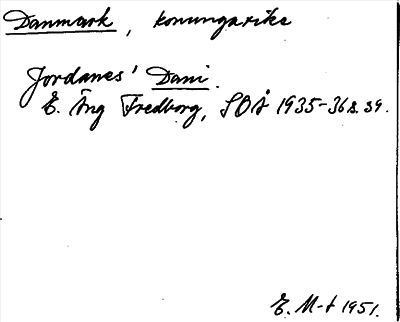 Danmark, konungarike
Jordanes' Dani.
E. Äng Fredborg, SOÅ 1935-36 s. 39.
E. M-t 1951.